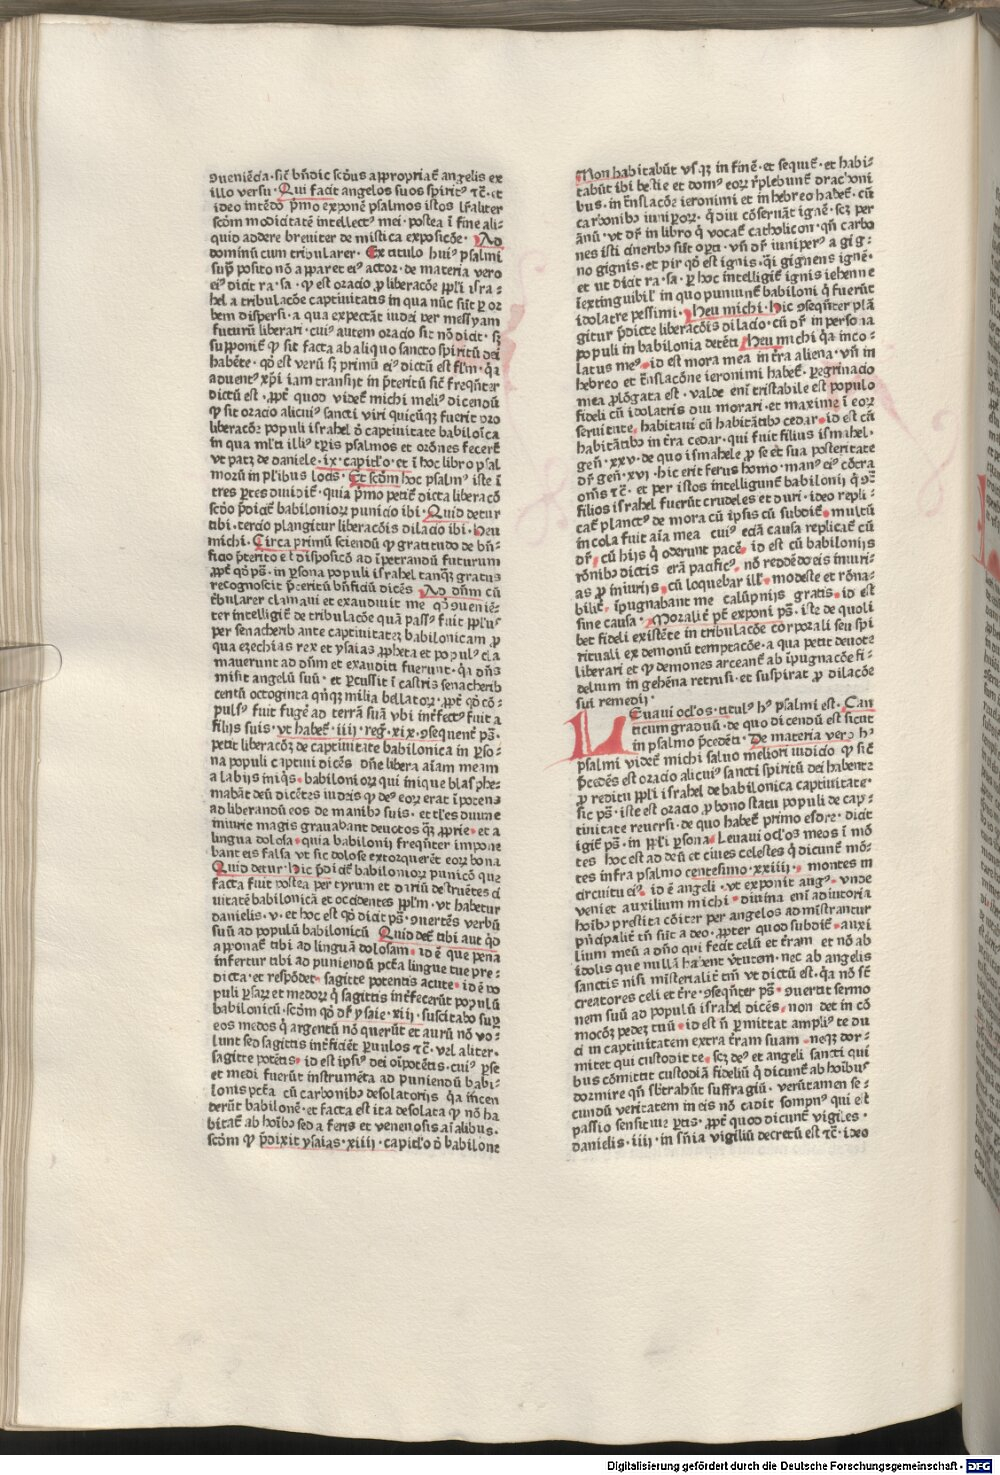 ꝯueniēcia· sic̄ bn̄dic scōus appropriat̄ angelis ex
illo versu· Qui facit angelos suos spirit⁹ ⁊c̄· et
ideo intēdo pͥmo exponē psalmos istos lr̄aliter
scōm modicitatē intellect⁹ mei· postea ī fine ali⸗
quid addere breuiter de mistica exposicōe· Ad
dominū cum tribularer· Ex titulo hui⁹ psalmi
sup̄ posito nō apparet ei⁹ actor· de materia vero
ei⁹ dicit ra· sa· ꝙ est oracio ꝓ liberacōe ppl̄i isra⸗
hel a tribulacōe captiuitatis in qua nūc sūt per or
bem dispersi· a qua expectāt iudei per messyam
futurū liberari· cui⁹ autem oracio sit nō dicit· sꝫ
supponit̄ ꝙ sit facta ab aliquo sancto spiritū dei
habēte· qd̄ est verū sꝫ primū ei⁹ dictū est fl̄m· qꝛ
aduent⁹ xp̄i iam transijt in pͥteritū sic̄ freqn̄ter
dictū est· ꝓpt̄ quod videt̄ michi meli⁹ dicendū
ꝙ sit oracio alicui⁹ sancti viri quicūqꝫ fuerit pro
liberacōe populi israhel d̄ captiuitate babilōica
in qua ml̄ti illi⁹ tꝑis psalmos et orōnes fecert̄
vt patꝫ de daniele· ix· capitl̓o· et ī hoc libro psal
morū in pl̄ibus locis· Et scōm hoc psalm⁹ iste ī
tres ꝑtes diuidit̄· quia pͥmo petit̄ dicta liberacō
scd̄o pͥdicit̄ babilonioꝝ punicio ibi· Quid detur
tibi· tercio plangitur liberacōis dilacio ibi· Heu
michi· Circa primū sciendū ꝙ gratitudo de bn̄⸗
ficio pͥterito est disposicō ad īpetrandū futurum
ꝓpt̄ qd̄ ps̄· in ꝑsona populi israhel tanqꝫ gratus
recognoscit pͥteritū bn̄ficiū dicēs· Ad dn̄m cū
tͥbularer clamaui et exaudiuit me qd̄ ꝯueniē⸗
ter intelligit̄ de tribulacōe quā pass⁹ fuit ppl̄us
per senacherib ante captiuitatez babilonicam ꝓ
qua ezechias rex et ysaias ꝓpheta et popul⁹ cla
mauerunt ad dn̄m et exauditi fuerunt· qꝛ dn̄s
misit angelū suū· et ꝑcussit ī castris senacherib
centū octoginta qn̄qꝫ milia bellatoꝝ· ꝓpt̄ qd̄ cō⸗
puls⁹ fuit fugē ad terrā suā vbi int̄fect⁹ fuit a
filijs suis· vt habet̄· iiij· reḡ· xix· ꝯsequent̄ ps̄·
petit liberacōez de captiuitate babilonica in ꝑso⸗
na populi captiui dicēs dn̄e libera aīam meam
a labijs iniqͥs· babilonioꝝ qui inique blasphe⸗
mabāt deū dicētes iudeis ꝙ de⁹ eoꝝ erat īpotens
ad liberandū eos de manibꝫ suis· et tl̄es diuine
iniurie magis grauabant deuotos qꝫ ꝓprie· et a
lingua dolosa· quia babilonij freqn̄ter impone
bant eis falsa vt sic dolose extorquerēt eoꝝ bona
Quid detur· Hic pͥdicit̄ babilonioꝝ punicō que
facta fuit postea per tyrum et dariū destruētes ci
uitatē babilonicā et occidentes ppl̄m· vt habetur
danielis· v· et hoc est qd̄ dicit ps̄· ꝯuertēs verbū
suū ad populū babilonicū Quid det̄ tibi aut qͥd
apponat̄ tibi ad linguā dolosam· id ē que pena
infertur tibi ad puniendū pctā lingue tue pre⸗
dicta· et respōdet· sagitte potentis acute· id ē do
puli ꝑsaꝝ et medoꝝ qͥ sagittis int̄fecerūt populū
babilonicū· scōm qd̄ dr̄ ysaie· xiij· suscitabo sup̄
eos medos qͥ argentū nō querūt et aurū nō vo⸗
lunt sed sagittis int̄ficiēt ꝑuulos ⁊c̄· vel aliter·
sagitte potētis· id est ipsi⁹ dei oīpotētis· cui⁹ ꝑse
et medi fuerūt instrumēta ad puniendū babi⸗
lonis pctā cū carbonibꝫ desolatorijs qꝛ īncen
derūt babilonē· et facta est ita desolata ꝙ nō ha
bitat̄ ab hoībꝫ sed a feris et venenosis aīalibus·
scōm ꝙ pͥdixit ysaias· xiiij· capitl̓o d̄ babilone
Non habitabūt vsqꝫ in finē· et sequit̄· et habi⸗
tabūt ibi bestie et dom⁹ eoꝝ rͤplebunt̄ drachoni
bus· in tn̄slacōe ieronimi et in hebreo habet̄· cū
carbonibꝫ iuniꝑoꝝ· qͥ diu cōseruāt ignē· scꝫ per
ānū· vt dr̄ in libro qͥ vocat̄ catholicon· qn̄ carbo
nes isti cineribꝫ sūt oꝑti· vn̄ dr̄ iuniper⁹ a gig⸗
no gignis· et pir qd̄ est ignis· qͣi gignens ignē·
et ut dicit ra· sa· ꝑ hoc intelligit̄ ignis iehenne
īextinguibil̓ in quo puniunt̄ babiloni qͥ fuerūt
idolatre pessimi· Heu michi· Hic ꝯseqn̄ter plā
gitur pͥdicte liberacōis dilacio· cū dr̄ in persona
populi in babilonia detēti Heu michi qꝛ inco⸗
latus me⁹· id est mora mea in tr̄a aliena· vn̄ in
hebreo et tn̄slacōne ieronimi habet̄· ꝑegrinacio
mea ꝓlōgata est· valde eni̅ tristabile est populo
fideli cū idolatris diu morari· et maxime ī eoꝝ
seruitute· habitaui cū habitātibꝫ cedar· id est cū
habitātibꝫ in tr̄a cedar· qui fuit filius ismahel·
gen̄· xxv· de quo ismahele ꝓ se et sua posteritate
dr̄ gen̄· xvj· hic erit ferus homo· man⁹ ei⁹ cōtra
om̄s ⁊c̄· et per istos intelligunt̄ babilonij qͥ ꝯͣ
filios israhel fuerūt crudeles et duri· ideo repli⸗
cat̄ planct⁹ de mora cū ipsis cū subdit̄· multū
incola fuit aīa mea cui⁹ eciā causa replicat̄ cū
dr̄· cū hijs qͥ oderunt pacē· id est cū babilonijs
rōnibꝫ dictis erā pacific⁹· nō reddēdo eis iniuri⸗
as ꝓ iniurijs· cū loquebar ill̓· modeste et rōna⸗
bilit̄· īpugnabant me calūpnijs gratis· id est
sine causa· Moralit̄ pt̄ exponi ps̄· iste de quoli
bet fideli existēte in tribulacōe corporali seu spi
rituali ex demonū temptacōe· a qua petit deuote
liberari et ꝙ demones arceant̄ ab īpugnacōe fi⸗
delium in gehēna retrusi· et suspirat ꝓ dilacōe
sui remedij·
LEuaui ocl̓os· titul⁹ hꝰ psalmi est· Can
ticum graduū· de quo dicendū est sicut
in psalmo pͥcedēti· De materia vero hꝰ
psalmi videt̄ michi saluo meliori iudicio ꝙ sic̄
pͥcedēs est oracio alicui⁹ sancti spiritū dei habentꝭ
ꝓ reditu ppl̄i israhel de babilonica captiuitate·
sic ps̄· iste est oracio ꝓ bono statu populi de cap⸗
tiuitate reuersi· de quo habet̄ primo esdre· dicit
igit̄ ps̄· in ppl̄i ꝑsona· Leuaui ocl̓os meos ī mō
tes hoc est ad deū et ciues celestes qͥ dicunt̄ mō⸗
tes infra psalmo centesimo· xxiiij· montes in
circuitu ei⁹· id ē angeli· vt exponit aug⁹· vnde
veniet auxilium michi· diuina eni̅ adiutoria
hoībꝫ prestita cōiter per angelos admīstrantur
pͥncipalit̄ tn̄ sūt a deo· ꝓpter quod subdit̄· auxi
lium meū a dn̄o qui fecit celū et tr̄am et nō ab
idolis que nullā habent vͥtutem· nec ab angelis
sanctis nisi mīsterialit̄ tm̄ vt dictū est· qꝛ nō st̄
creatores celi et tr̄e· ꝯseqn̄ter ps̄· ꝯuertit sermo
nem suū ad populū israhel dicēs· non det in cō
mocōꝫ pedeꝫ tuū· id est n̄ ꝑmittat ampli⁹ te du
ci in captiuitatem extra tr̄am suam· neqꝫ dor⸗
mitet qui custodit te· scꝫ de⁹ et angeli sancti qui
bus cōmitat̄ custodiā fideliū qͥ dicunt̄ ab hoībꝰ
dormire qn̄ sb̄trahūt suffragiū· verūtamen se⸗
cundū veritatem in eis nō cadit sompn⁹ qui est
passio sensitiue ꝑtis· ꝓpt̄ quod dicunt̄ vigiles·
danielis· iiij· in sn̄ia vigiliū decretū est ⁊c̄· ideo
Digitalisierung gefördert durch die Deutsche Forschungsgemeinschaft - DFG